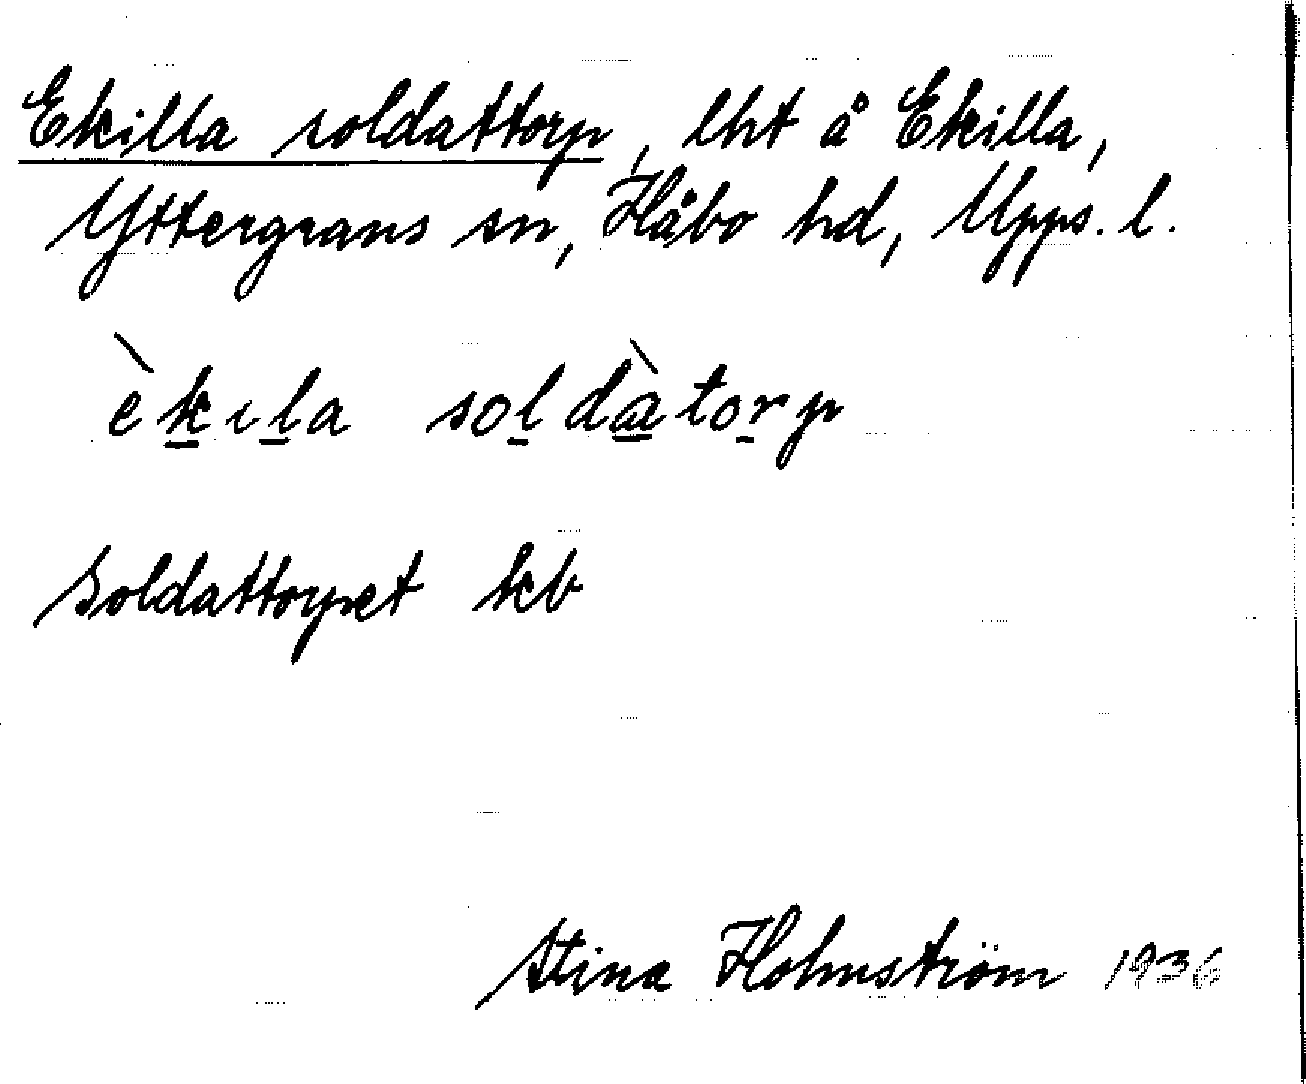 Ekilla soldattorp, lht å Ekilla,
Yttergrans sn, Håbo hd, Upps. l.
èkıla soldàtorp
Soldattorpet kb
Stina Holmström 1936